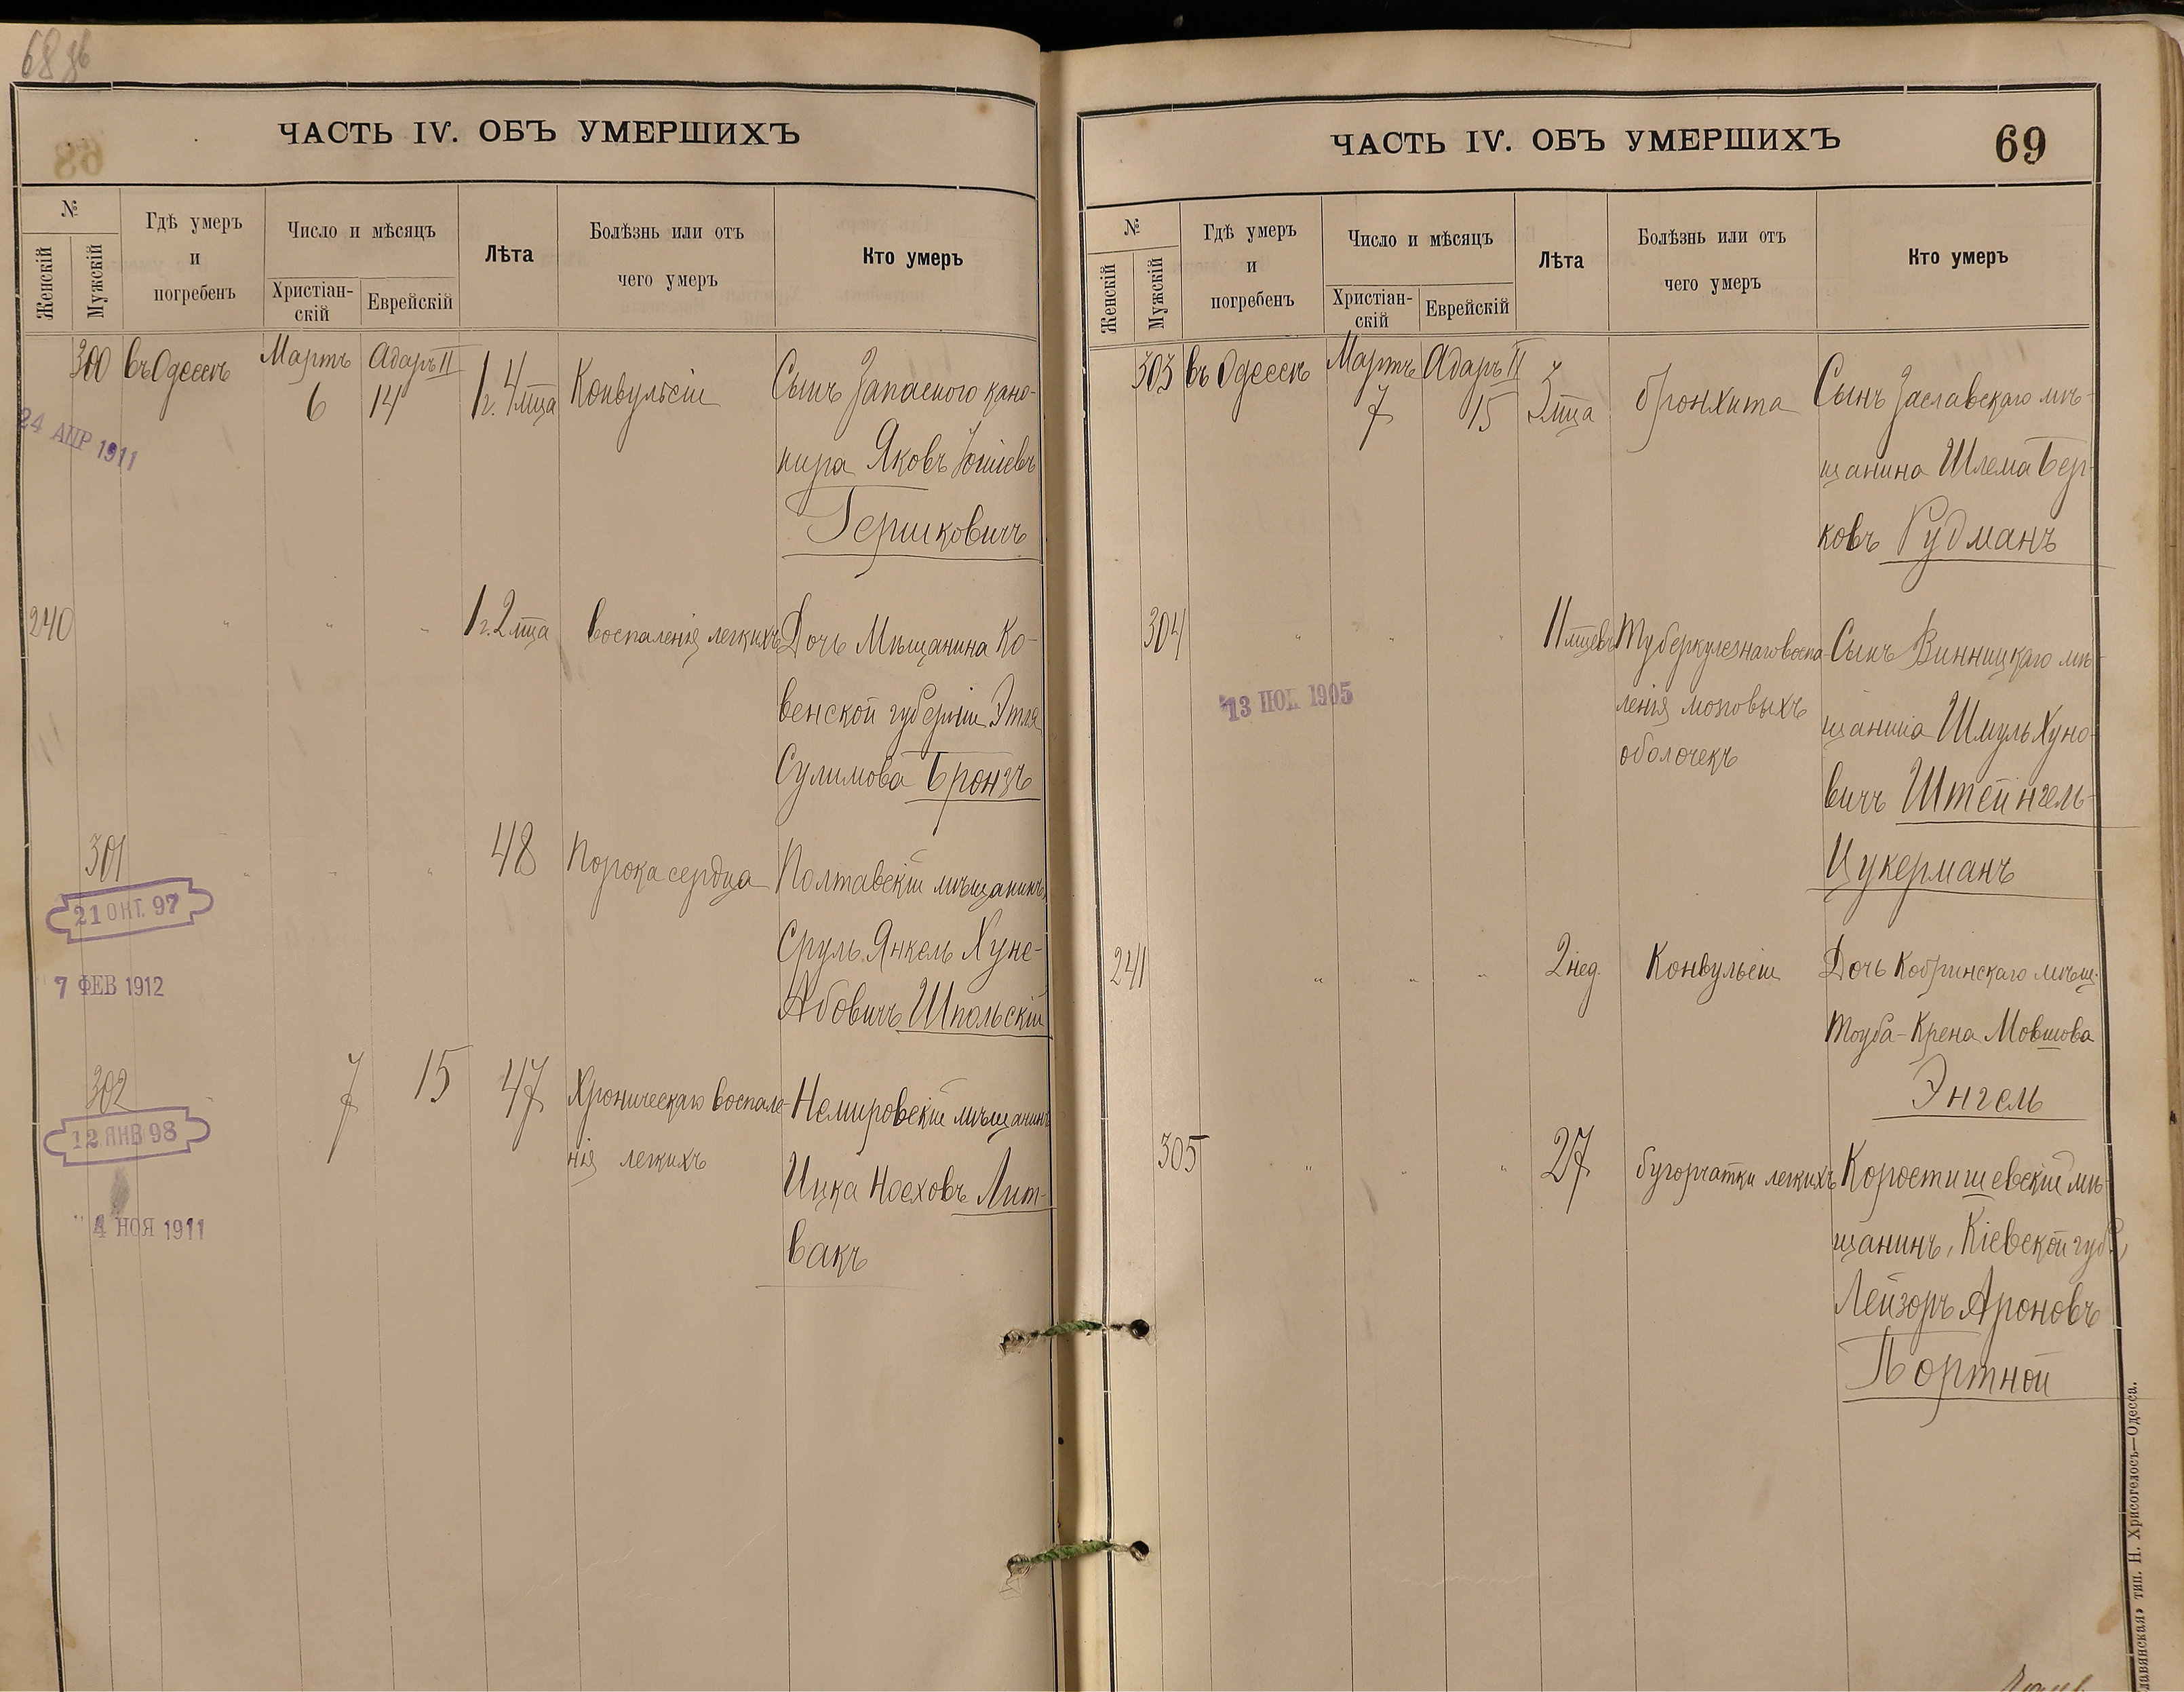 68 об
ЧАСТЬ IV. ОБЪ УМЕРШИХЪ
№
Женскій
Мужскій
Гдѣ умеръ
и
погребенъ
Число и мѣсяцъ
Христіан-
скій
Еврейскій
Лѣта
Болѣзнь или отъ
чего умеръ
Кто умеръ
300 въ Одессѣ Мартъ 6 Адаръ II 14 1 г. 4 мца Конвульсіи Сынъ Запасного кано-
нира Яковъ Іосіевъ
Гершковичъ
24 АПР 1911
240 " " " 1 г. 2 мца воспаленія легкихъ Дочь Мѣщанина Ко-
венской губерніи Этля
Сулимова Бронзъ
301 " " " 48 Порока сердца Полтавскій мѣщанинъ
Сруль Янкель Хуне-
Абовичъ Шпольскій
21 ОКТ. 97
7 ФЕВ 1912
302 7 15 47 Хроническаго воспале-
нія легкихъ
Немировскій мѣщанинъ
Ицка Ноеховъ Лит-
вакъ
12 ЯНВ 98
4 НОЯ 1911
ЧАСТЬ IV. ОБЪ УМЕРШИХЪ
69
№
Женскій
Мужскій
Гдѣ умеръ
и
погребенъ
Число и мѣсяцъ
Христіан-
скій
Еврейскій
Лѣта
Болѣзнь или отъ
чего умеръ
Кто умеръ
303 въ Одессѣ Мартъ 7 Адаръ II 15 3 мца бронхита Сынъ Заславскаго мѣ-
щанина Шлема Бер-
ковъ Гудманъ
304 " " " 11 мцевъ Туберкулезнаго воспа-
ленія мозговыхъ
оболочекъ
Сынъ Винницкаго мѣ-
щанина Шмуль Хуно-
вичъ Штейнгель-
Цукерманъ
13 1905
241 " " " 2 нед. Конвульсіи Дочь Кобринскаго мѣщ.
Тоуба-Крена Мовшова
Энгель
305 " " " 27 бугорчатки легкихъ Коростишевскій мѣ-
щанинъ, Кіевской губ.,
Лейзоръ Ароновъ
Портной
тип. Н. Хрисогелосъ—Одесса.